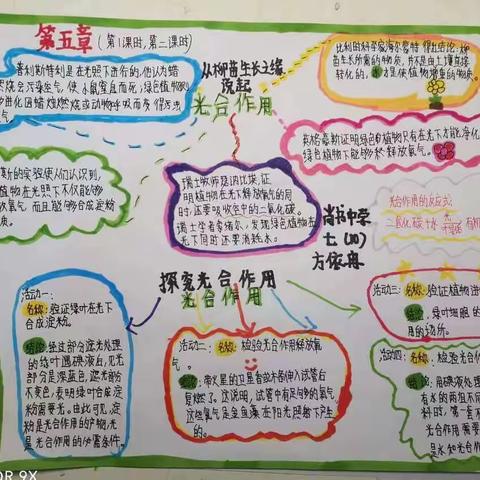 第五章(第1课时,第二课时)
从柳苗生长之缘
说起
光合作用
普利斯特利是在光照下进行的,他认为蜡
气
比利时科学家海尔蒙特 得出结论:柳
苗生长所需的物质,并不是由土壤直接
转化的,水才是使植物增重的物质。
英格豪斯证明绿色植物只有在光下才能净化
绿色植物在光下能够 释放氧气。
斯的实验使人们认识到,
植物在光照下不仅能够
放氧气 而且能够合成淀粉
质。
瑞士牧师是讷比埃,证
明植物在光下释放氧气的同
时,还要吸收空中的二氧化碳。
瑞士学者索绪尔,发现绿色植物在
光下同时 还要消耗水。
尚书中学
七(10)
方依冉
光合作用的反应式:
二氧化碳+水 光 有机
探究光合作用
光合作用
活动一:
名称:验证绿叶在光下
合成淀粉。
结论:经过部分遮光处理
的绿叶遇碘液后,见光
部分是深蓝色,遮光部分
不变色,表明绿叶合成淀
粉需要光。由此可见,淀
粉是光合作用的产物,光
是光合作用的必需条件。
活动二:名称:检验光合作用释放氧
气。
结论:带火星的卫生香放木条伸入试管后
复燃了。这说明,试管中有足够的氧气,
这些氧气是金鱼藻在阳光照射下产生
的。
活动三:名称:验证植物进
结论,绿叶细胞的
用的场所。
活动四:名称:检验光合作
结论:用碘液处理
有水的两组不同
料时,第一套
光合作用需要
是水和光合作
OR 9X